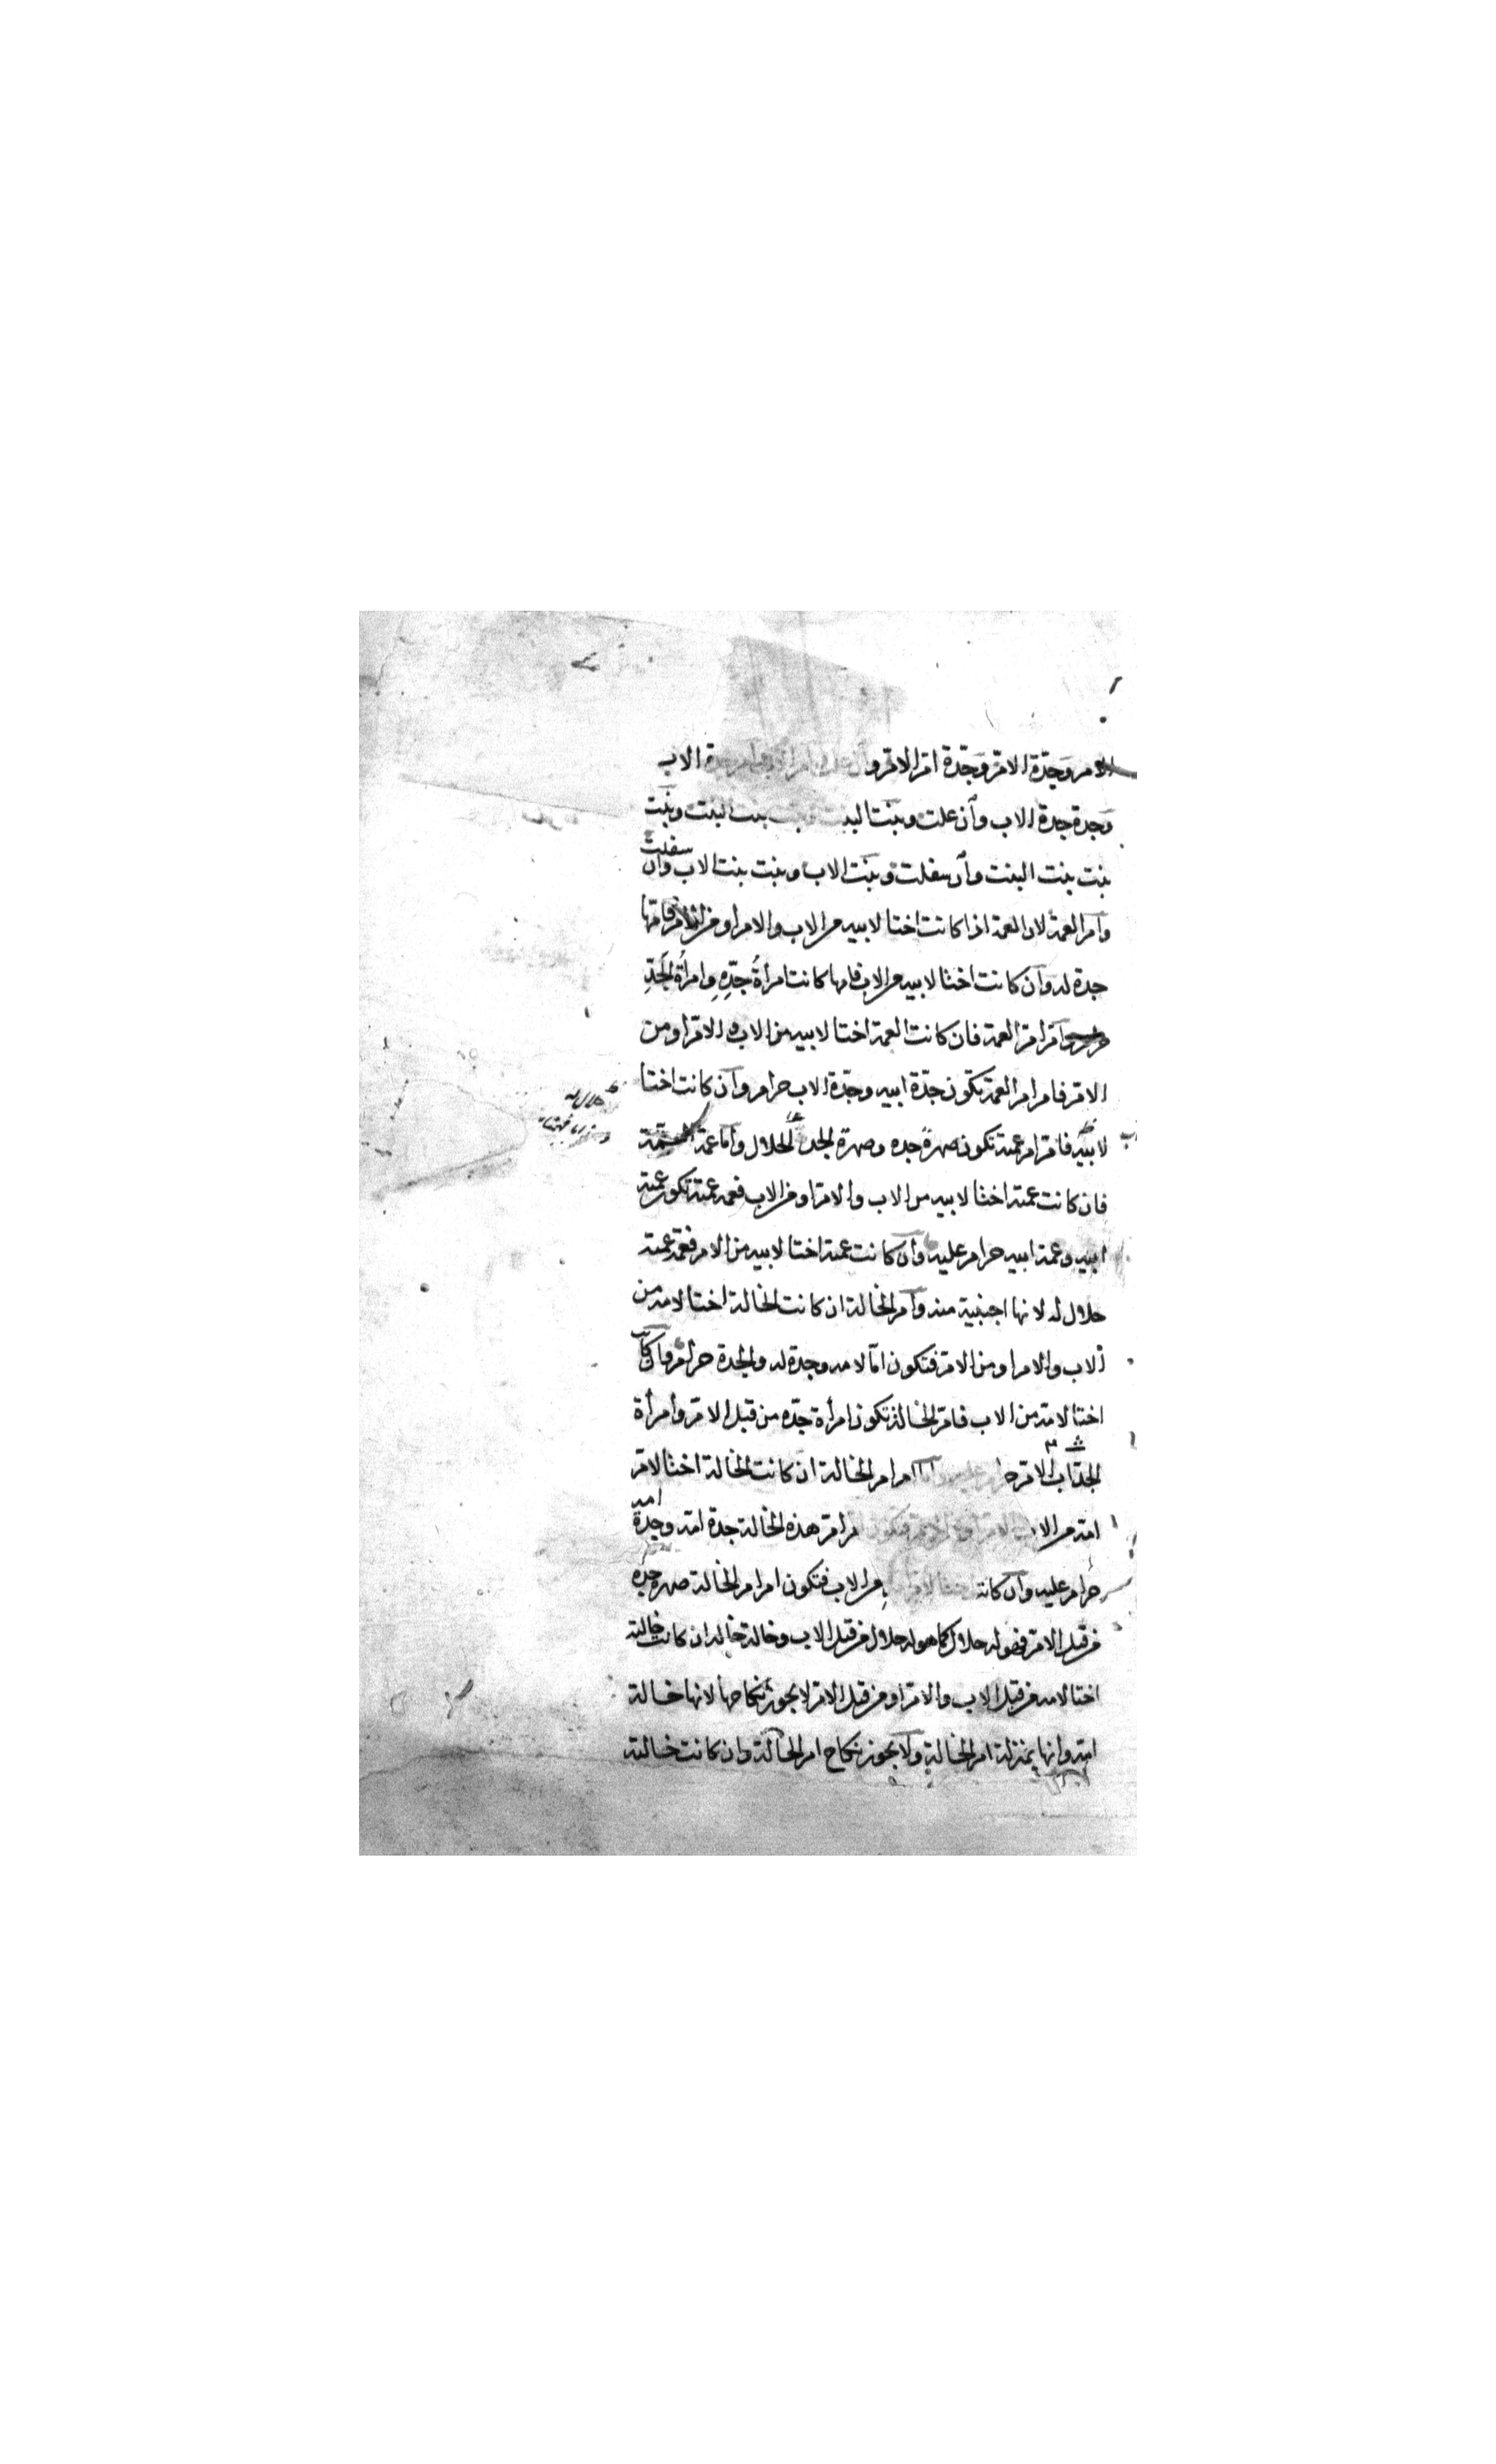 الام وجدّة الامّ وجدّة امّ الامّ وان علت وام الاب وام جدة الاب
وجدة جدة الاب وان علت وبنت البنت وبنت بنت البنت وبنت
بنت بنت البنت وان سفلت وبنت الاب وبنت بنت الاب وان سفلت
وام العمة لان العمة اذا كانت اختا لابيه من الاب والام او من الام فامها
جدة له وان كانت اختا لابيه من الاب فامها كانت امرأة جدّه وامرأة الجدّ
امّ امّ العمة فان كانت العمة اختا لابيه من الاب والامّ او من
الامّ فام ام العمة تكون جدّة ابيه وجدّة الاب حرام وان كانت اختا
لابيه فامّ ام عمته تكون صهرة جده وصهرة الجد حلال واما عمة العمة
فان كانت عمته اختا لابيه من الاب والامّ او من الاب فعمة عمته تكون عمة
ابيه وعمة ابيه حرام عليه وان كانت عمته اختا لابيه من الام فعمة عمته
حلال له لانها اجنبية منه وام الخالة ان كانت الخالة اختا لامه من
الاب والام او من الامّ فتكون امّا لامه وجدة له والجدة حرام وان كانت
اختا لامه من الاب فامّ الخالة تكون امرأة جدّه من قبل الامّ وامرأة
الجدّ اب الامّ حرام عليه واما ام ام الخالة ان كانت الخالة اختا لامّ
امه من الاب والامّ او من الام فتكون ام امّ هذه الخالة جدة امه وجدة امه
حرام عليه وان كانت اختا لامه من الاب فتكون ام ام الخالة صهرة جده
من قبل الامّ فهو له حلال كما هو له حلال من قبل الاب وخالة خاله ان كانت خالته
اختا لامه من قبل الاب والامّ او من قبل الامّ لا يجوز نكاحها لانها خالة
امه وانها بمنزلة ام الخالة ولا يجوز نكاح ام الخالة وان كانت خالته